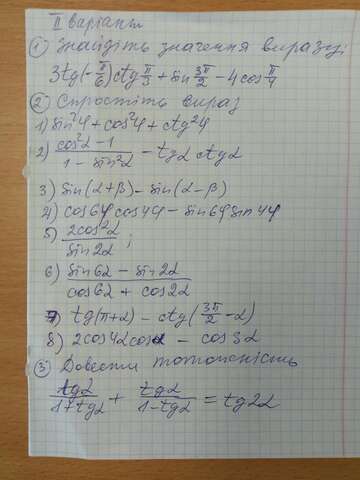 II варіант
① Знайдіть значення виразу:
3tg(-π/6)ctg π/3 + sin 3π/2 - 4cos π/4
② Спростіть вираз
1) sin²φ + cos²φ + ctg²φ
2) (cos²α - 1)/(1 - sin²α) - tgα ctgα
3) sin(α+β) - sin(α-β)
4) cos6φ cos4φ - sin6φ sin4φ
5) 2cos²α/sin2α;
6) (sin6α - sin2α)/(cos6α + cos2α)
7) tg(π+α) - ctg(3π/2 - α)
8) 2cos4αcosα - cos3α
③ Довести тотожність
tgα/(1+tgα) + tgα/(1-tgα) = tg2α